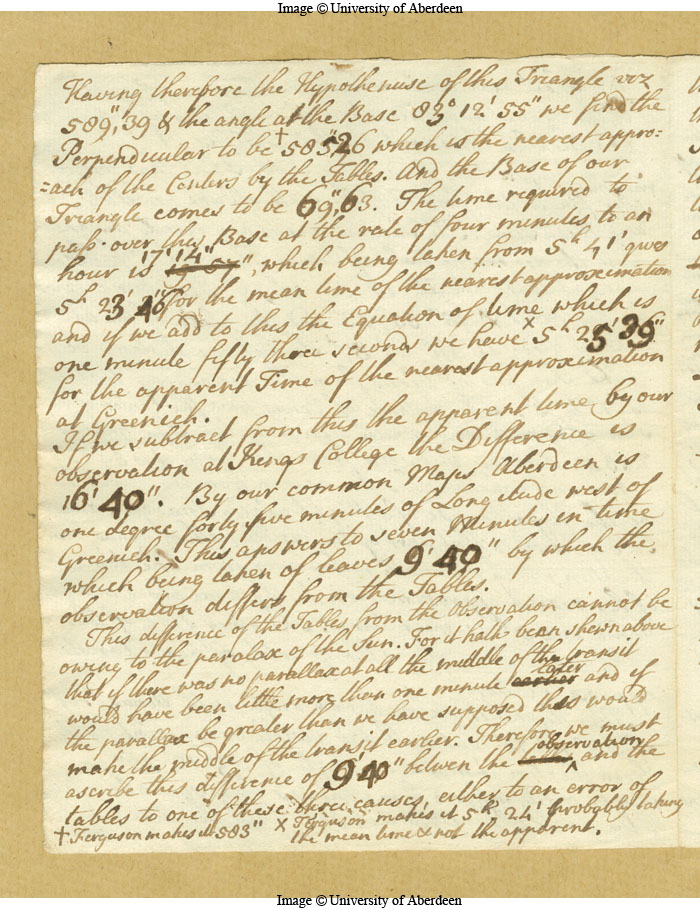 Image © University of Aberdeen
Having therefore the Hypothenuse of this Triangle viz
589",39 & the angle at the Base 83° 12' 55" we find the
Perpendicular to be † 585",26 which is the nearest appro=
=ach of the Centers by the Tables. And the Base of our
Triangle comes to be 69",63. The time required to
pass over this Base at the rate of four minutes to an
hour is 17' 14", which being taken from 5h 41' gives
5h 23' 46" for the mean time of the nearest approximation
and if we add to this the Equation of time which is
one minute fifty three seconds we have × 5h 25' 39"
for the apparent Time of the nearest approximation
at Greenich.
If we subtract from this the apparent time by our
observation at Kings College the Difference is
16' 40". By our common Maps Aberdeen is
one degree forty five minutes of Longitude west of
Greenich. This answers to seven Minutes in time
which being taken of leaves 9' 40" by which the
observation differs from the Tables.
This difference of the Tables from the Observation cannot be
owing to the paralax of the Sun. For it hath been shewn above
that if there was no parallax at all the middle of the transit
would have been little more than one minute earlier later and if
the parallax be greater than we have supposed this would
make the middle of the transit earlier. Therefore we must
ascribe this difference of 9' 40" between the observation and the
tables to one of these three causes, either to an error of
† Ferguson makes it 583" × Ferguson makes it 5h 24' probably taking
the mean time & not the apparent.
Image © University of Aberdeen